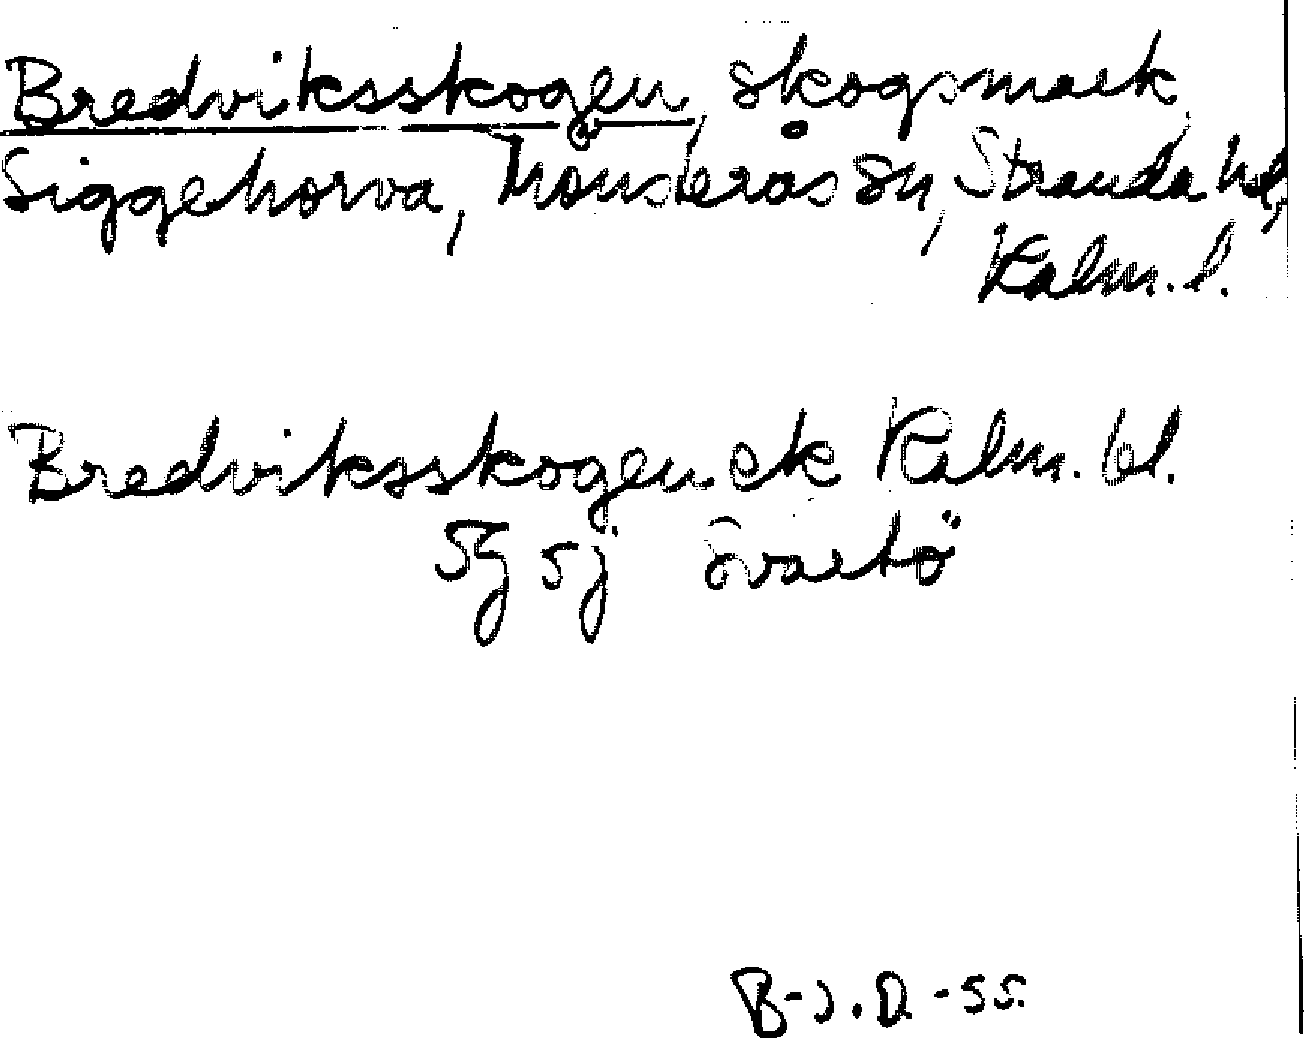 Bredviksskogen, skogsmark
Siggehorva, Mönsterås sn, Stranda hd,
Kalm. l.
Bredviksskogen ek Kalm. bl.
5g 5j Svartö
B-J.D. -55.